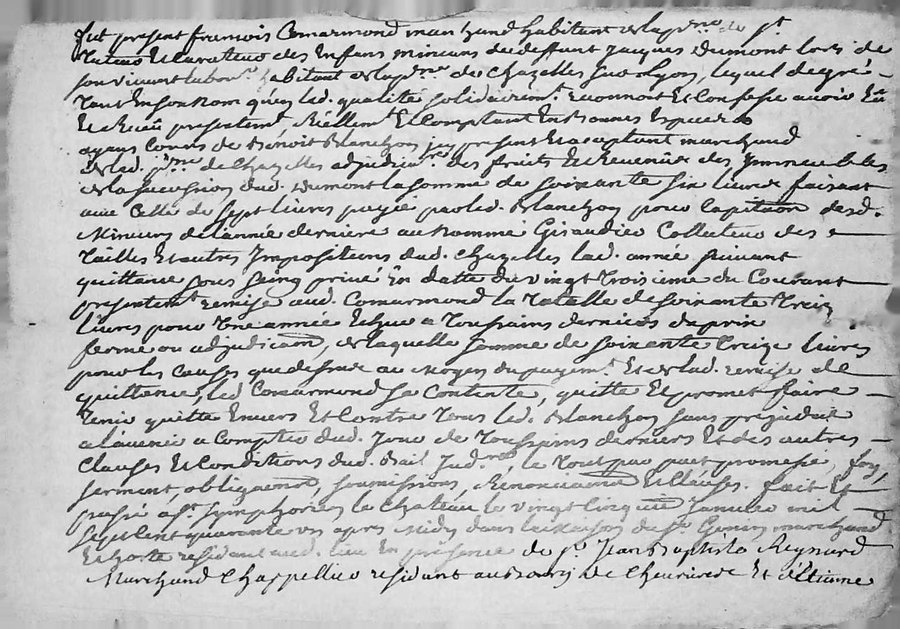 fut present francois Comarmond marchand habitant de la p.sse de st
Tuteur et Curateur des Enfans mineurs du deffunt Jacques Dumont lors de
son vivant labou.r habitant de la p.sse de Chazelles sur Lyon, lequel de gré
tant En son nom qu'en lad. qualité solidairem.t reconnoit Et Confesse avoir Eû
et receû presentem.t réellem.t Et Comptant En Bonnes Especes
ayans Cours de Benoit Blanchon icy present et acceptant marchand
de lad. p.sse de Chazelles adjudicat.re des fruits et Revenûs des Immeubles
de la succession dud. Dumont la somme de soixante six livres faisant
avec Celle de sept livres payée par led. Blanchon pour Capitaôn desd.
Mineurs de l'année derniere au nomme Giraudier Collecteur des
Tailles et autres Impositions dud. Chazelles lad. année suivant
quittance sous seing privé En datte du vingt troisieme du Courant
presentem.t remise aud. Comarmond la totalle de soixante treize
livres pour Une année Echue a Toussains derniers du prix
ferme ou adjudicaôn, de laquelle somme de soixante treize livres
pour les Causes que dessus au moyen du payem.t Et de lad. remise de
quittance, led Comarmond se Contente, quitte Et promet faire
tenir quitte Envers Et Contre tous led. Blanchon sans préjudice
a l'avenir a Compter dud. Jour de Toussains derniers Et des autres
Clauses Et Conditions dud. Bail Jud.re, le tout par pact promesse, foy,
serment, obligaôn, soumissions, Renonciaôn et Clauses. fait Et
passé a S.t Symphorien le Chateau le vingt Cinquie Janvier mil
sept Cent quarante apres Midy dans la Maison du S.r marchand
Et hoste residant aud. lieu En présence de S.r Jean Baptiste Reynard
Marchand Chappellier residant au Bourg de Chevrieres Et d'Etienne